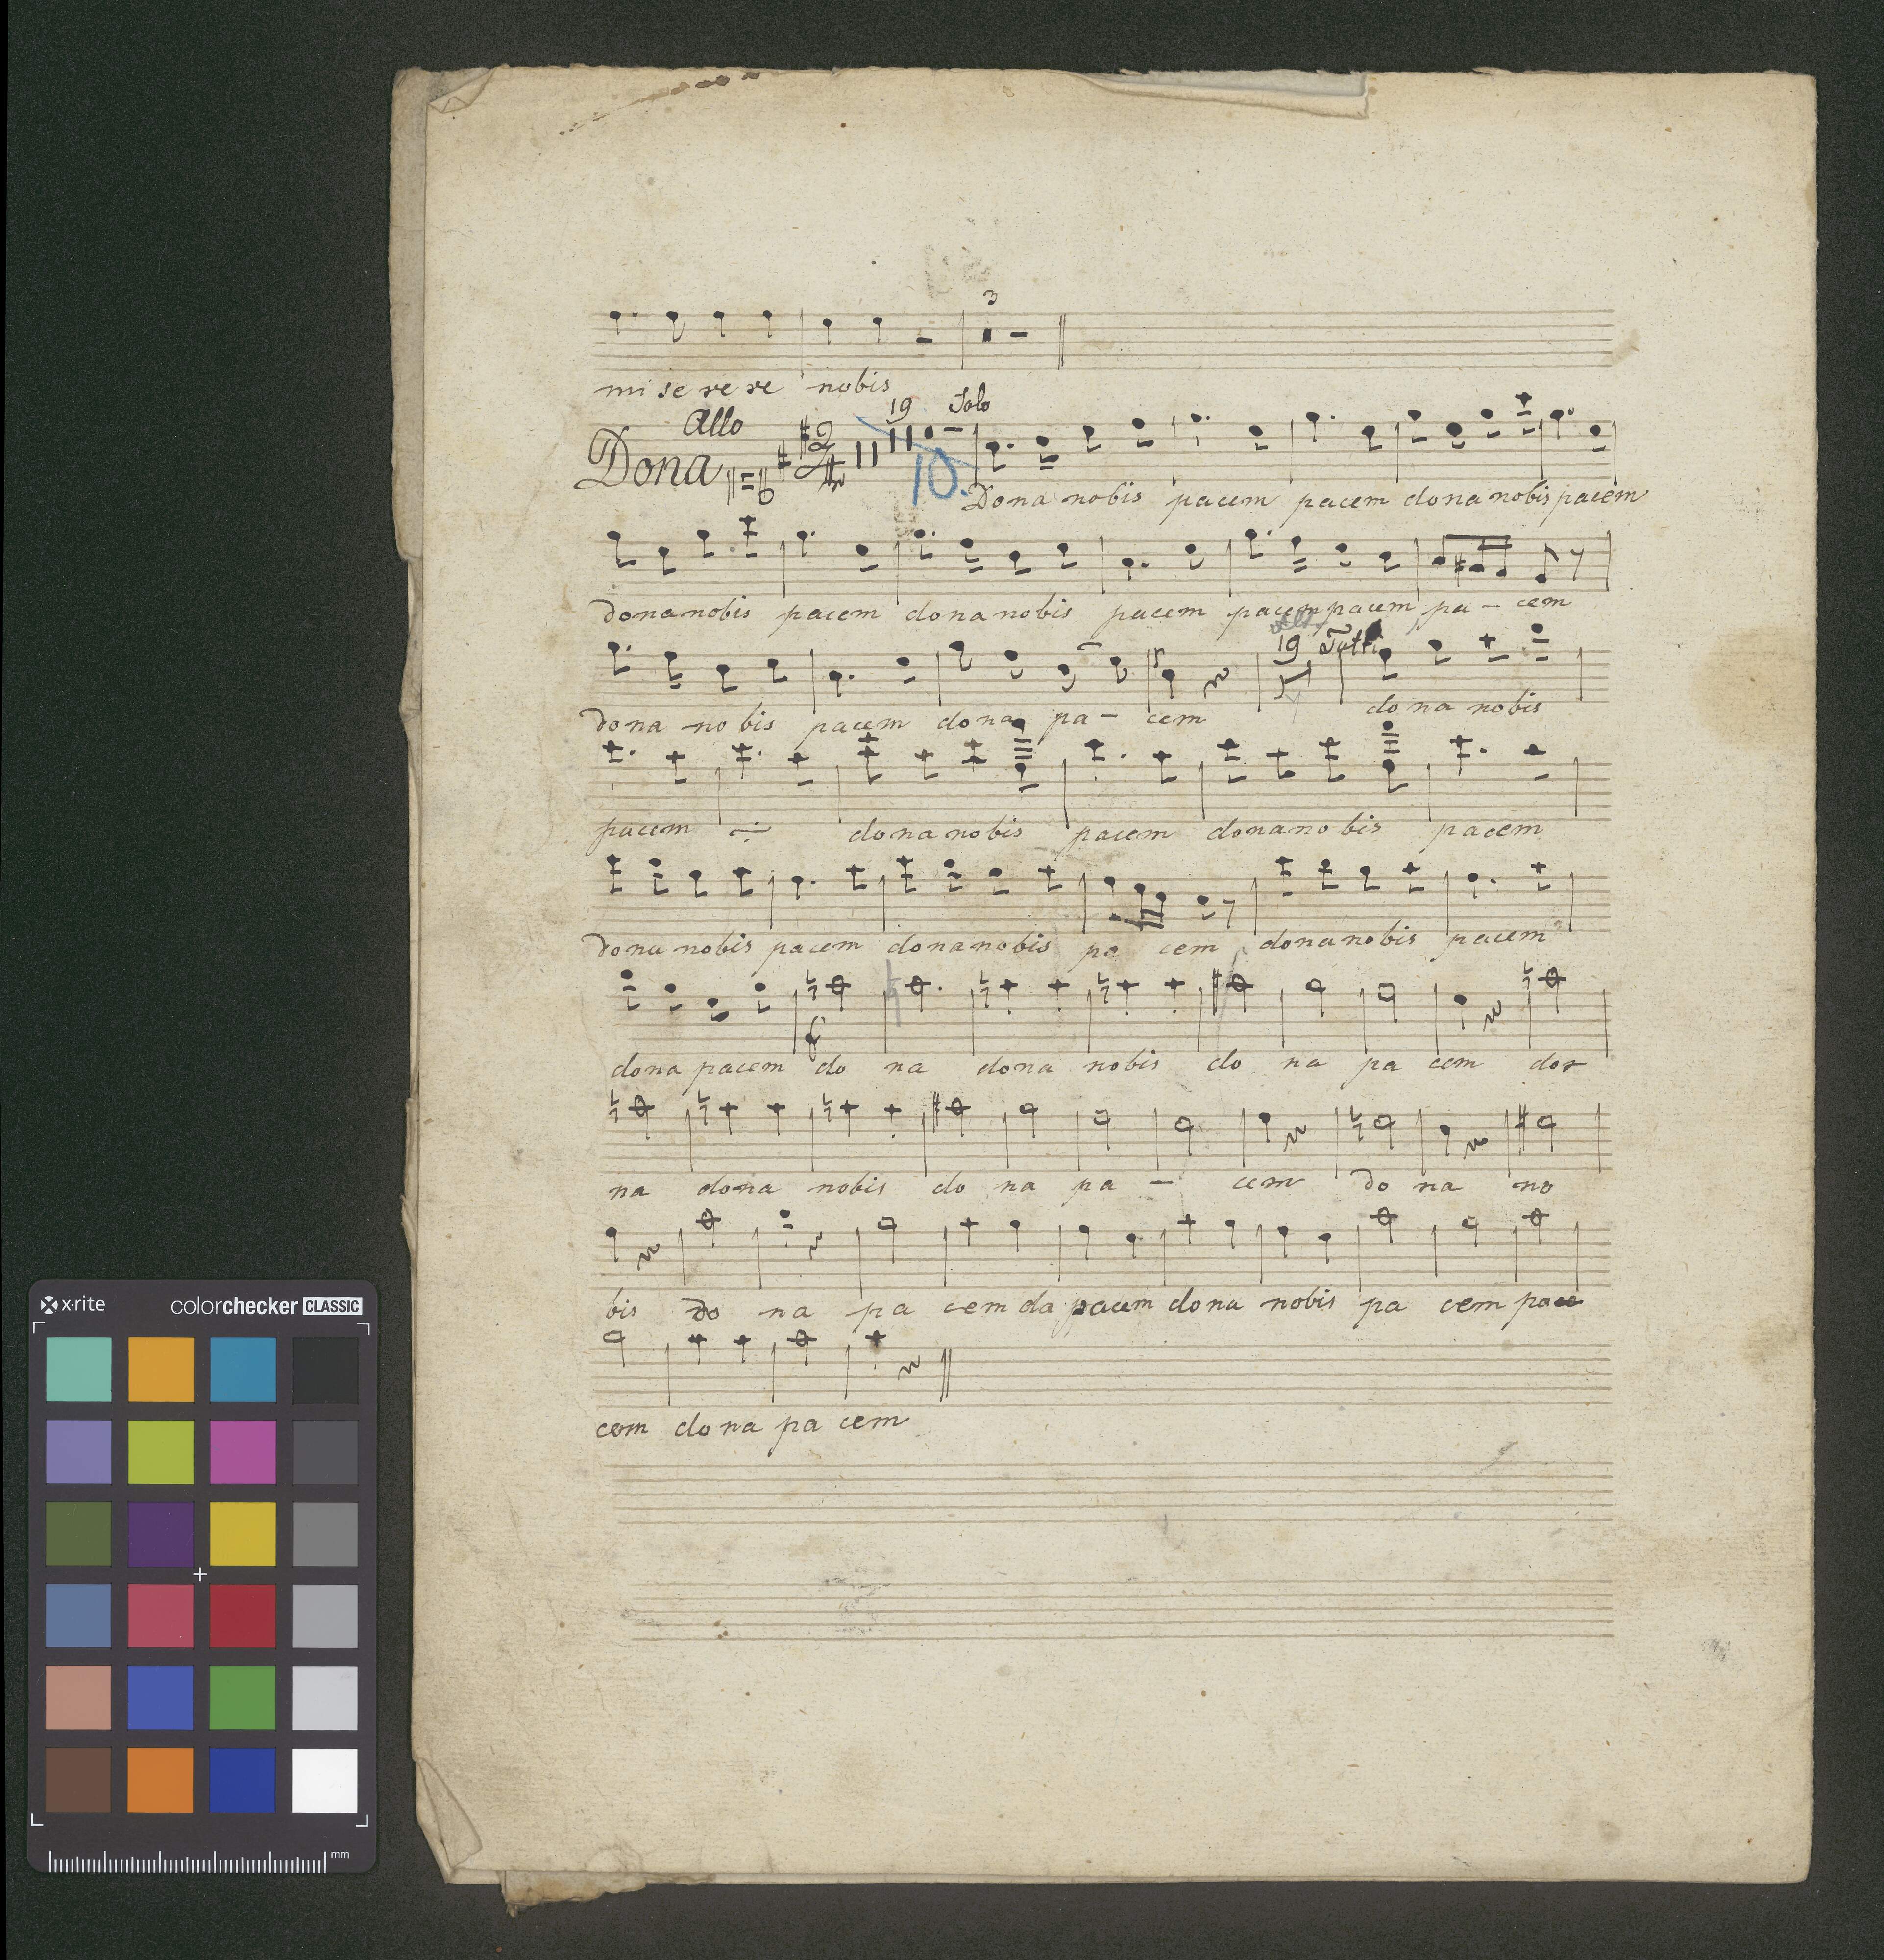 3
mi se re re nobis
Allo 19 Solo
Dona 2 4 10.
Dona nobis pacem pacem dona nobis pacem
dona nobis pacem dona nobis pacem pacem pacem pa - cem
19 Tutti
dona no bis pacem dona pa - cem do na nobis
pacem dona nobis pacem dona no bis pacem
dona nobis pacem dona nobis pa cem dona nobis pacem
f
dona pacem do na dona nobis do na pa cem do
na dona nobis do na pa - cem do na no
bis do na pa cem da pacem dona nobis pa cem pace
cem do na pa cem
x·rite colorchecker CLASSIC
mm